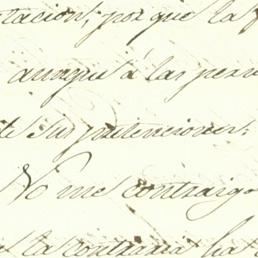 tacion; por que la
aunque á las pers
de sus pretenciones.
No me contraigo
la contraria ha